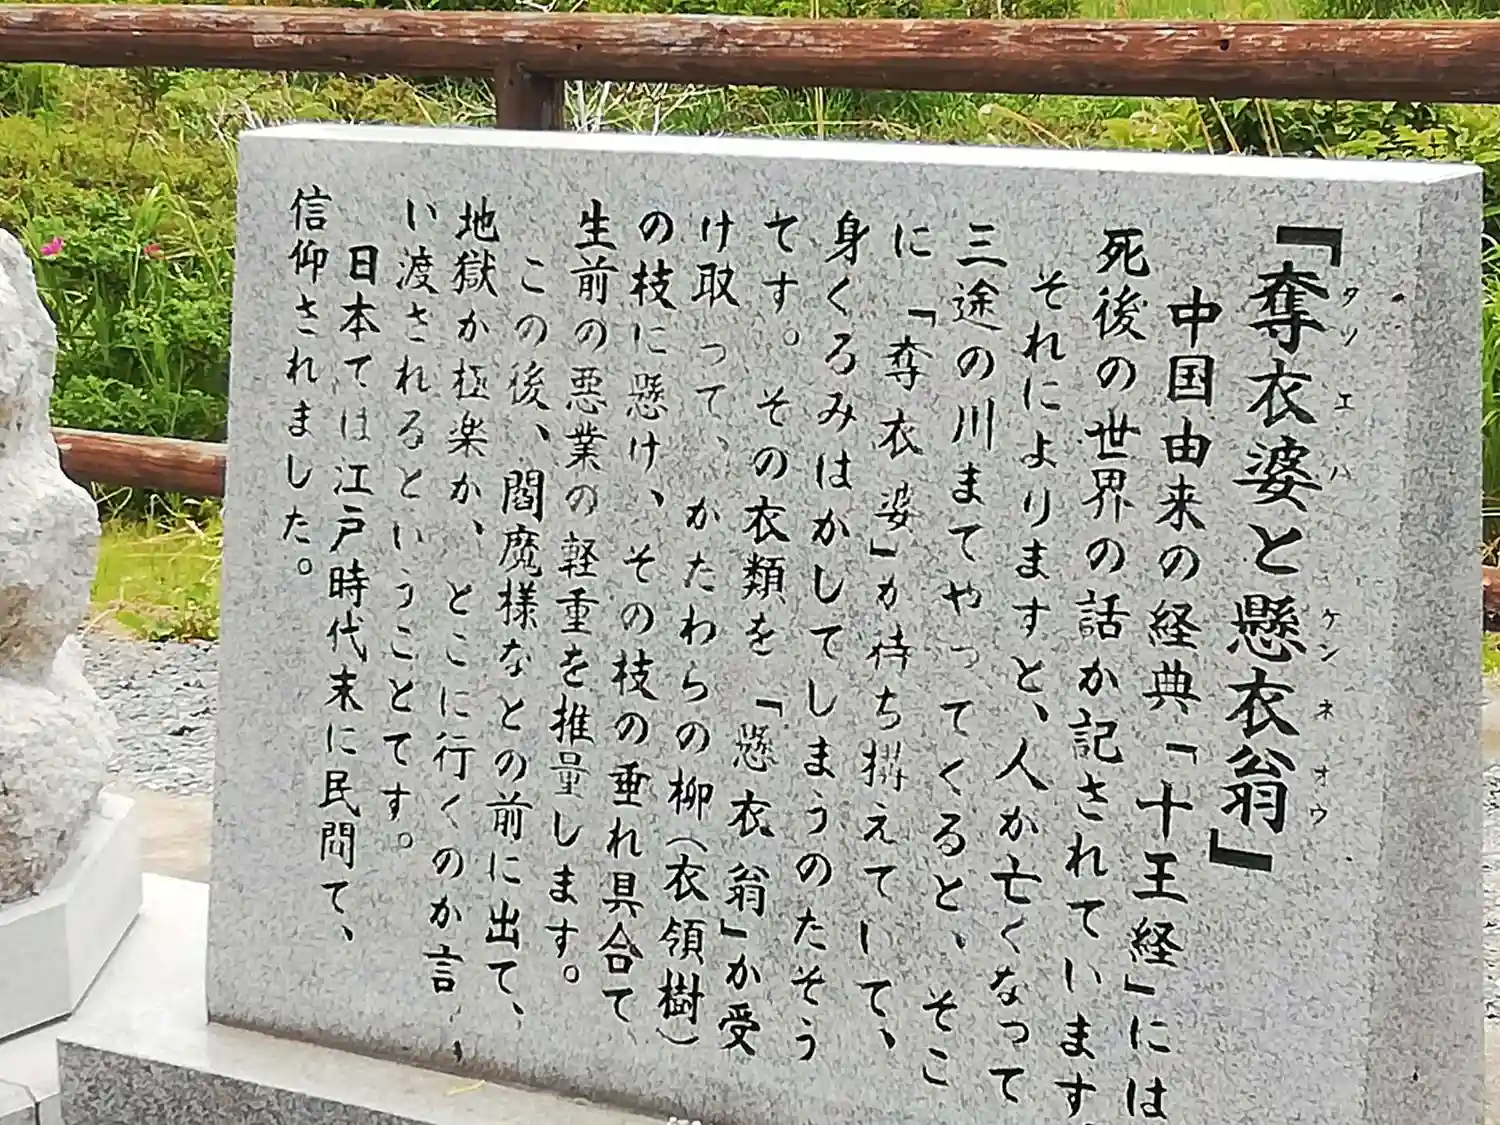 『奪衣婆と懸衣翁』
タツエバ ケンネオウ
中国由来の経典「十王経」には
死後の世界の話が記されています。
それによりますと、人が亡くなって
三途の川までやってくると、そこ
に「奪衣婆」が待ち構えてして、
身ぐるみはがしてしまうのだそう
です。その衣類を「懸衣翁」が受
け取って、かたわらの柳(衣領樹)
の枝に懸け、その枝の垂れ具合で
生前の悪業の軽重を推量します。
この後、閻魔様などの前に出て、
地獄か極楽か、どこに行くのか言
い渡されるということです。
日本では江戸時代末に民間で、
信仰されました。